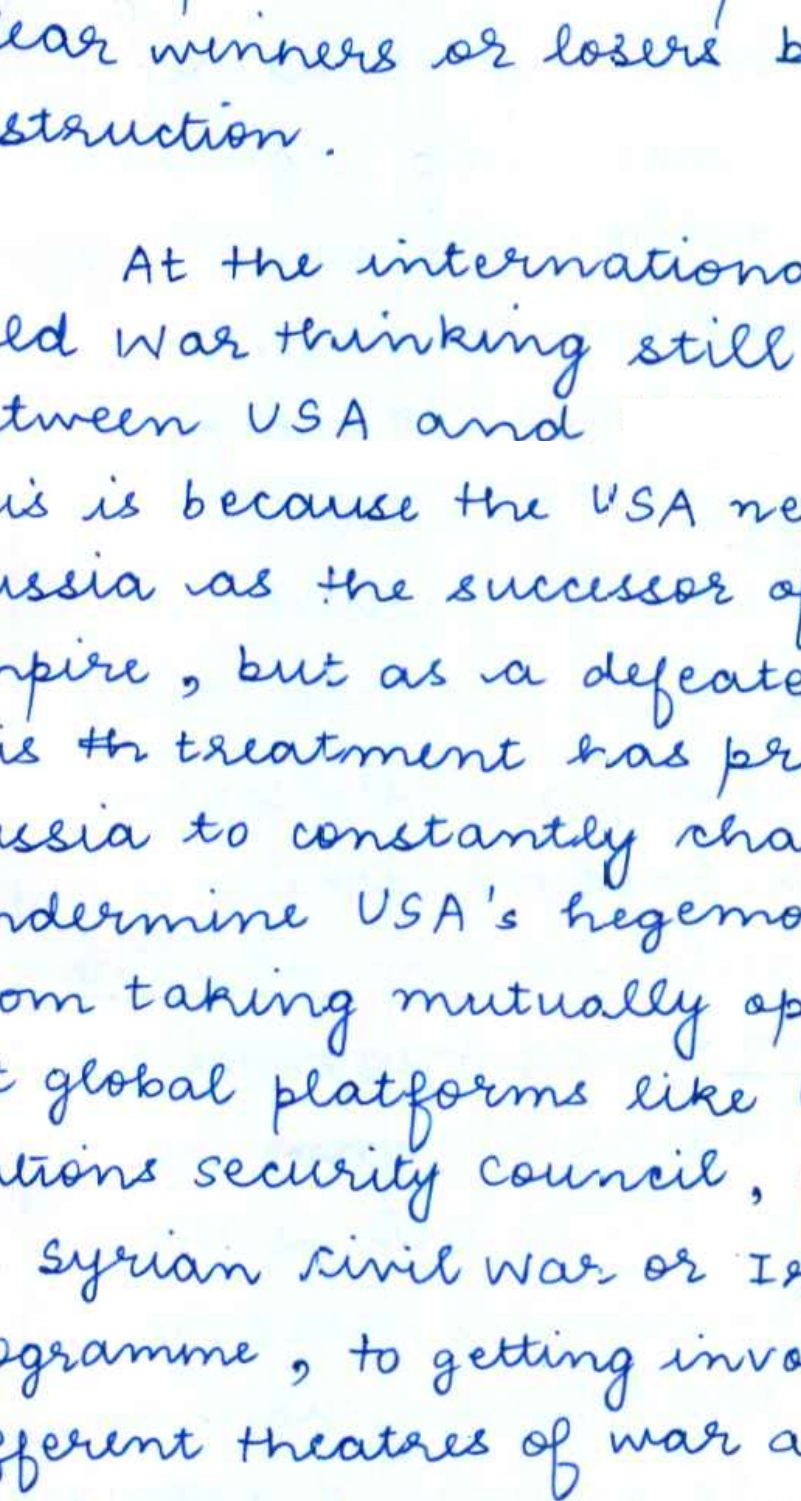 lear winners or losers b
struction.
At the internationa
ld War thinking still
tween USA and
is is because the USA ne
ussia as the successor of
mpire, but as a defeate
is th treatment has pr
ussia to constantly cha
ndermine USA's hegemo
om taking mutually op
t global platforms like
ations security council,
Syrian civil war or Ir
ogramme, to getting invo
fferent theatres of war a